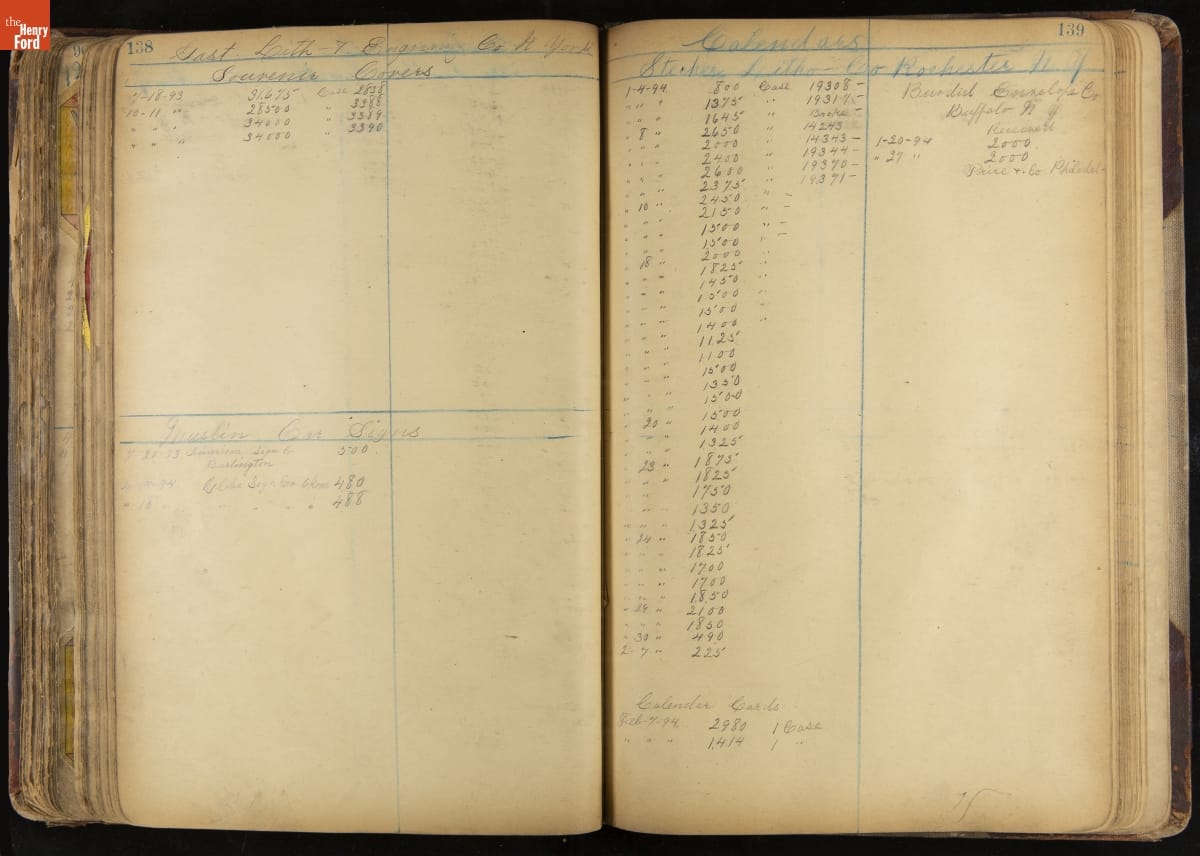 the
Henry
Ford
138
Gast Lith & Engraving Co N York
Souvenir Covers
7-18-93 31,675 Case 2838
10-11 " 28500 " 3388
" " " 34000 " 3389
" " " 34000 " 3390
Muslin Car Signs
7 20-93 American Sign Co 500
Burlington
94 Globe Sign Co 480
" 18 " " " " 488
139
Calendars
Stecher Litho Co Rochester N Y
1-4-94 800 Case 19308 -
" " " 1375 " 19317 -
1645 " Broke -
" 8 " 2650 " 14243
" " 2000 " 14343 -
" " 2400 " 19344 -
" " 2600 " 19370 -
" " 2375 " 19371 -
" " 2450 " -
" 10 " 2150 " -
" " 1500 " -
" " 1500 "
2000 "
18 " 1825 "
" " 1450 "
" " 1500 "
" " 1500 "
" " 1400 "
" " 1125
" " 1100
" " 1500
" " 1350
" " 1500
" " 1500
" 20 " 1400
" " 1325
" " 1875
" 23 " 1825
" " 1750
" " 1350
" " 1325
" 24 " 1850
" " 1825
" " 1700
" " 1700
" " 1850
" 29 " 2100
" " 1850
" 30 " 490
2-7 " 225
Calendar Cards
Feb-7-94 2980 1 Case
" " " 1,414 1 "
Envelope Co
Buffalo N Y
Received
1-20-94 2000
" 27 " 2000
Price & Co Philadel-